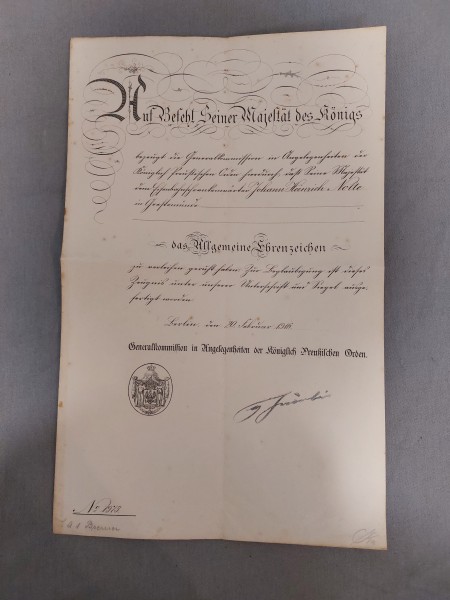 Auf Befehl Seiner Majestät des Königs
bezeugt die Generalkommission in Angelegenheiten der
Königlich Preußischen Orden hierdurch, daß Seine Majestät
dem Johann Heinrich Nolte
in
das Allgemeine Ehrenzeichen
zu verleihen geruht haben. Zur Beglaubigung ist dieses
Zeugnis unter unserer Unterschrift und Siegel ausge-
fertigt worden.
Berlin, den 20. Februar
Generalkommission in Angelegenheiten der Königlich Preußischen Orden.